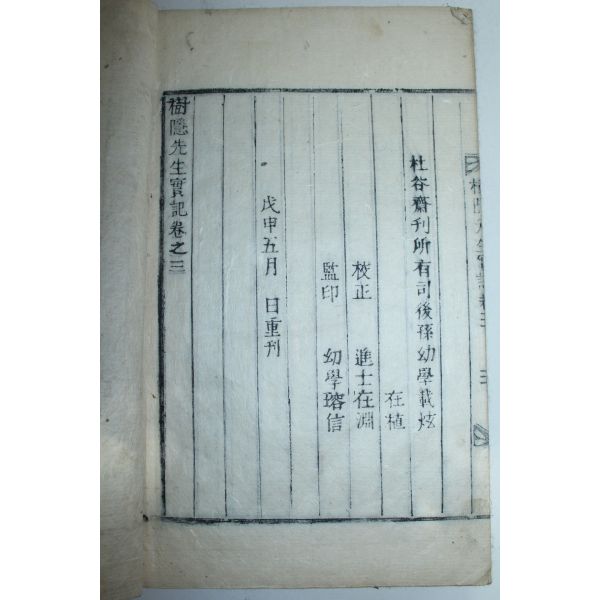 樹隱先生實記卷之三
杜谷齋刊所有司後孫幼學載炫
在植
校正 進士在淵
監印 幼學瑢信
戊申五月 日重刊
樹隱先生實記卷之三